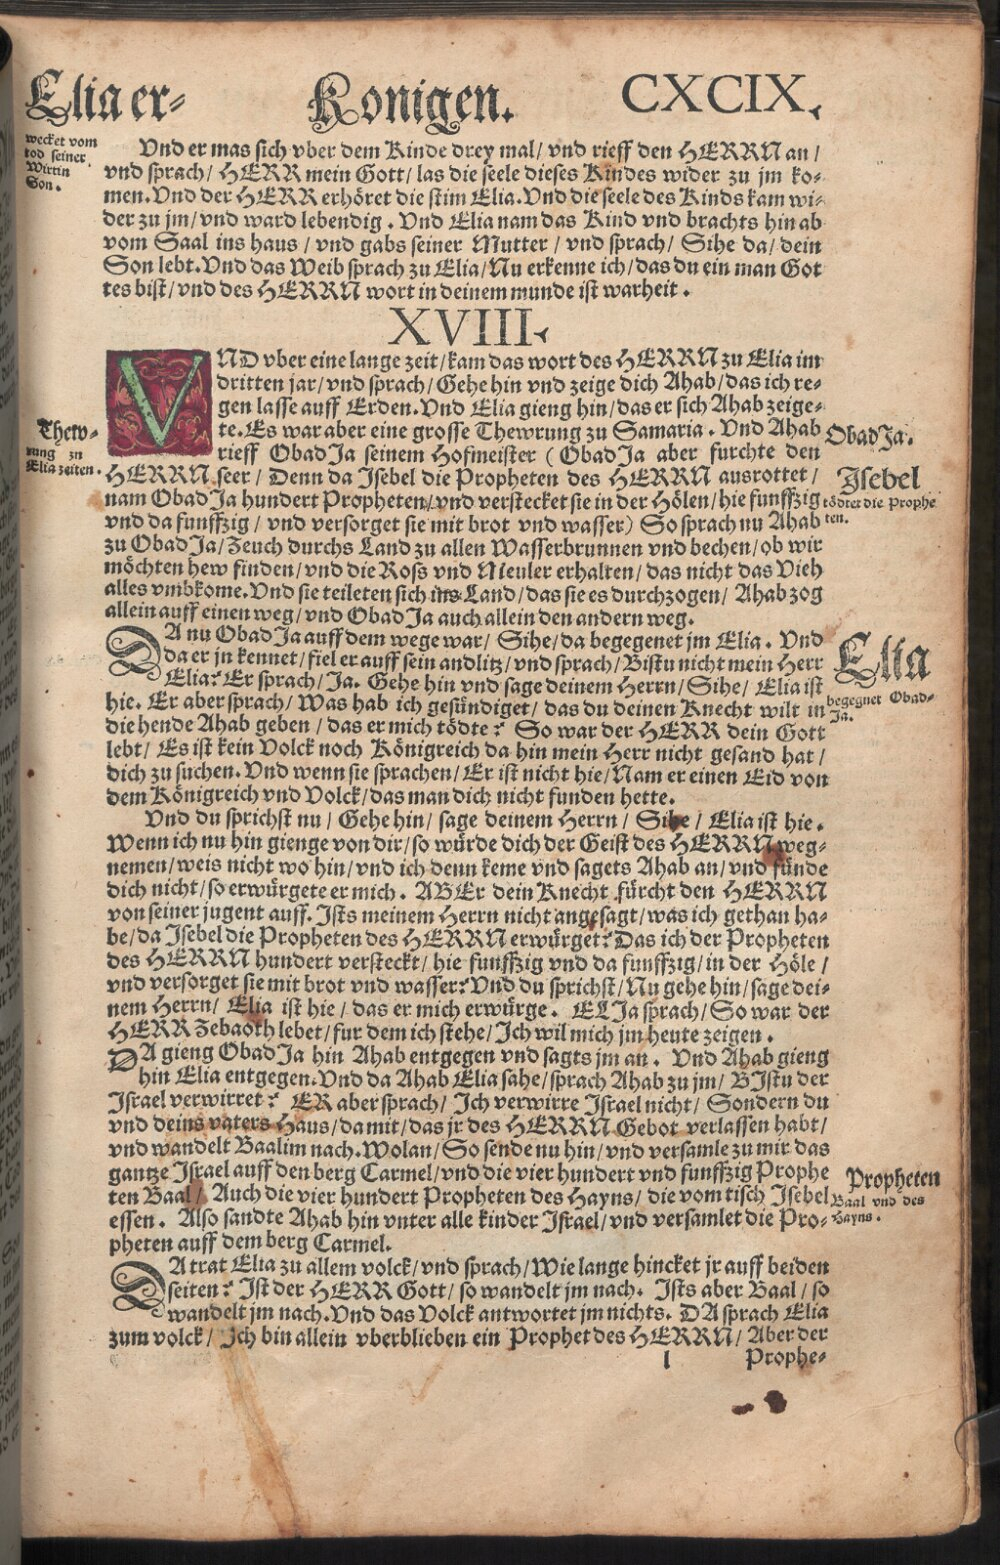 Elia er-
Konigen.
CXCIX.
wecket vom
tod seiner
Wirtin
Son.
Vnd er mas sich vber dem Kinde drey mal/ vnd rieff den HERRN an/
vnd sprach/ HERR mein Gott/ las die seele dieses Kindes wider zu jm ko-
men. Vnd der HERR erhöret die stim Elia. Vnd die seele des Kinds kam wi-
der zu jm/ vnd ward lebendig. Vnd Elia nam das Kind vnd brachts hin ab
vom Saal ins haus/ vnd gabs seiner Mutter/ vnd sprach/ Sihe da/ dein
Son lebt. Vnd das Weib sprach zu Elia/ Nu erkenne ich/ das du ein man Got
tes bist/ vnd des HERRN wort in deinem munde ist warheit.
XVIII.
VND vber eine lange zeit/ kam das wort des HERRN zu Elia im
dritten jar/ vnd sprach/ Gehe hin vnd zeige dich Ahab/ das ich re-
gen lasse auff Erden. Vnd Elia gieng hin/ das er sich Ahab zeige-
te. Es war aber eine grosse Thewrung zu Samaria. Vnd Ahab
rieff ObadJa seinem Hofmeister (ObadJa aber furchte den
HERRN seer/ Denn da Jsebel die Propheten des HERRN ausrottet/
nam ObadJa hundert Propheten/ vnd verstecket sie in der Hölen/ hie funffzig
vnd da funffzig/ vnd versorget sie mit brot vnd wasser) So sprach nu Ahab
zu ObadJa/ Zeuch durchs Land zu allen Wasserbrunnen vnd bechen/ ob wir
möchten hew finden/ vnd die Ross vnd Meuler erhalten/ das nicht das Vieh
alles vmbkome. Vnd sie teileten sich ins Land/ das sie es durchzogen/ Ahab zog
allein auff einen weg/ vnd ObadJa auch allein den andern weg.
Thew-
rung zu
Elia zeiten.
ObadJa.
Jsebel
tödter die Prophe
ten.
DA nu ObadJa auff dem wege war/ Sihe/ da begegenet jm Elia. Vnd
da er jn kennet/ fiel er auff sein andlitz/ vnd sprach/ Bistu nicht mein Herr
Elia? Er sprach/ Ja. Gehe hin vnd sage deinem Herrn/ Sihe/ Elia ist
hie. Er aber sprach/ Was hab ich gesündiget/ das du deinen Knecht wilt in
die hende Ahab geben/ das er mich tödte? So war der HERR dein Gott
lebt/ Es ist kein Volck noch Königreich da hin mein Herr nicht gesand hat/
dich zu suchen. Vnd wenn sie sprachen/ Er ist nicht hie/ Nam er einen Eid von
dem Königreich vnd Volck/ das man dich nicht funden hette.
Elia
begegnet Obad-
Ja.
Vnd du sprichst nu/ Gehe hin/ sage deinem Herrn/ Sihe/ Elia ist hie.
Wenn ich nu hin gienge von dir/ so würde dich der Geist des HERRN weg-
nemen/ weis nicht wo hin/ vnd ich denn keme vnd sagets Ahab an/ vnd fünde
dich nicht/ so erwürgete er mich. ABEr dein Knecht fürcht den HERRN
von seiner jugent auff. Ists meinem Herrn nicht angesagt/ was ich gethan ha-
be/ da Jsebel die Propheten des HERRN erwürget? Das ich der Propheten
des HERRN hundert versteckt/ hie funffzig vnd da funffzig/ in der Höle/
vnd versorget sie mit brot vnd wasser? Vnd du sprichst/ Nu gehe hin/ sage dei-
nem Herrn/ Elia ist hie/ das er mich erwürge. ELJa sprach/ So war der
HERR Zebaoth lebet/ fur dem ich stehe/ Ich wil mich jm heute zeigen.
DA gieng ObadJa hin Ahab entgegen vnd sagts jm an. Vnd Ahab gieng
hin Elia entgegen. Vnd da Ahab Elia sahe/ sprach Ahab zu jm/ BIstu der
Israel verwirret? ER aber sprach/ Ich verwirre Israel nicht/ Sondern du
vnd deins vaters Haus/ da mit/ das jr des HERRN Gebot verlassen habt/
vnd wandelt Baalim nach. Wolan/ So sende nu hin/ vnd versamle zu mir das
gantze Israel auff den berg Carmel/ vnd die vier hundert vnd funffzig Prophe
ten Baal/ Auch die vier hundert Propheten des Hayns/ die vom tisch Isebel
essen. Also sandte Ahab hin vnter alle kinder Israel/ vnd versamlet die Pro-
pheten auff dem berg Carmel.
Propheten
Baal vnd des
Hayns.
DA trat Elia zu allem volck/ vnd sprach/ Wie lange hincket jr auff beiden
seiten? Ist der HERR Gott/ so wandelt jm nach. Ists aber Baal/ so
wandelt jm nach. Vnd das Volck antwortet jm nichts. DA sprach Elia
zum volck/ Ich bin allein vberblieben ein Prophet des HERRN/ Aber der
l
Prophe-